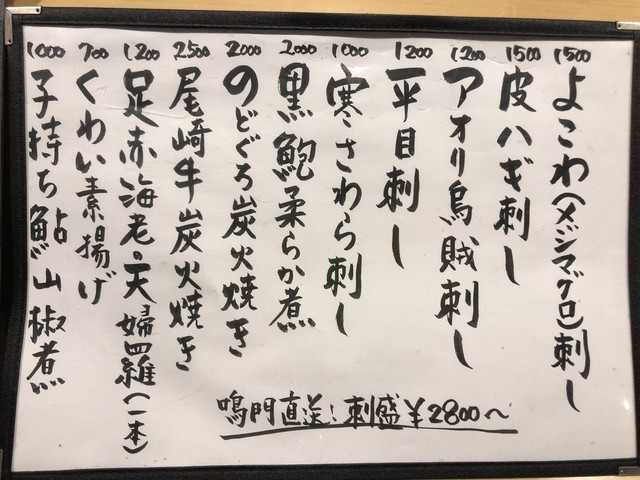 1500 よこわ(メジマグロ)刺し
1500 皮ハギ刺し
1200 アオリ烏賊刺し
1200 平目刺し
1000 寒さわら刺し
2000 黒鮑柔らか煮
2000 のどぐろ炭火焼き
2500 尾崎牛炭火焼き
1200 足赤海老の天婦羅(一本)
700 くわい素揚げ
1000 子持ち鮎山椒煮
鳴門直送!刺盛¥2800〜